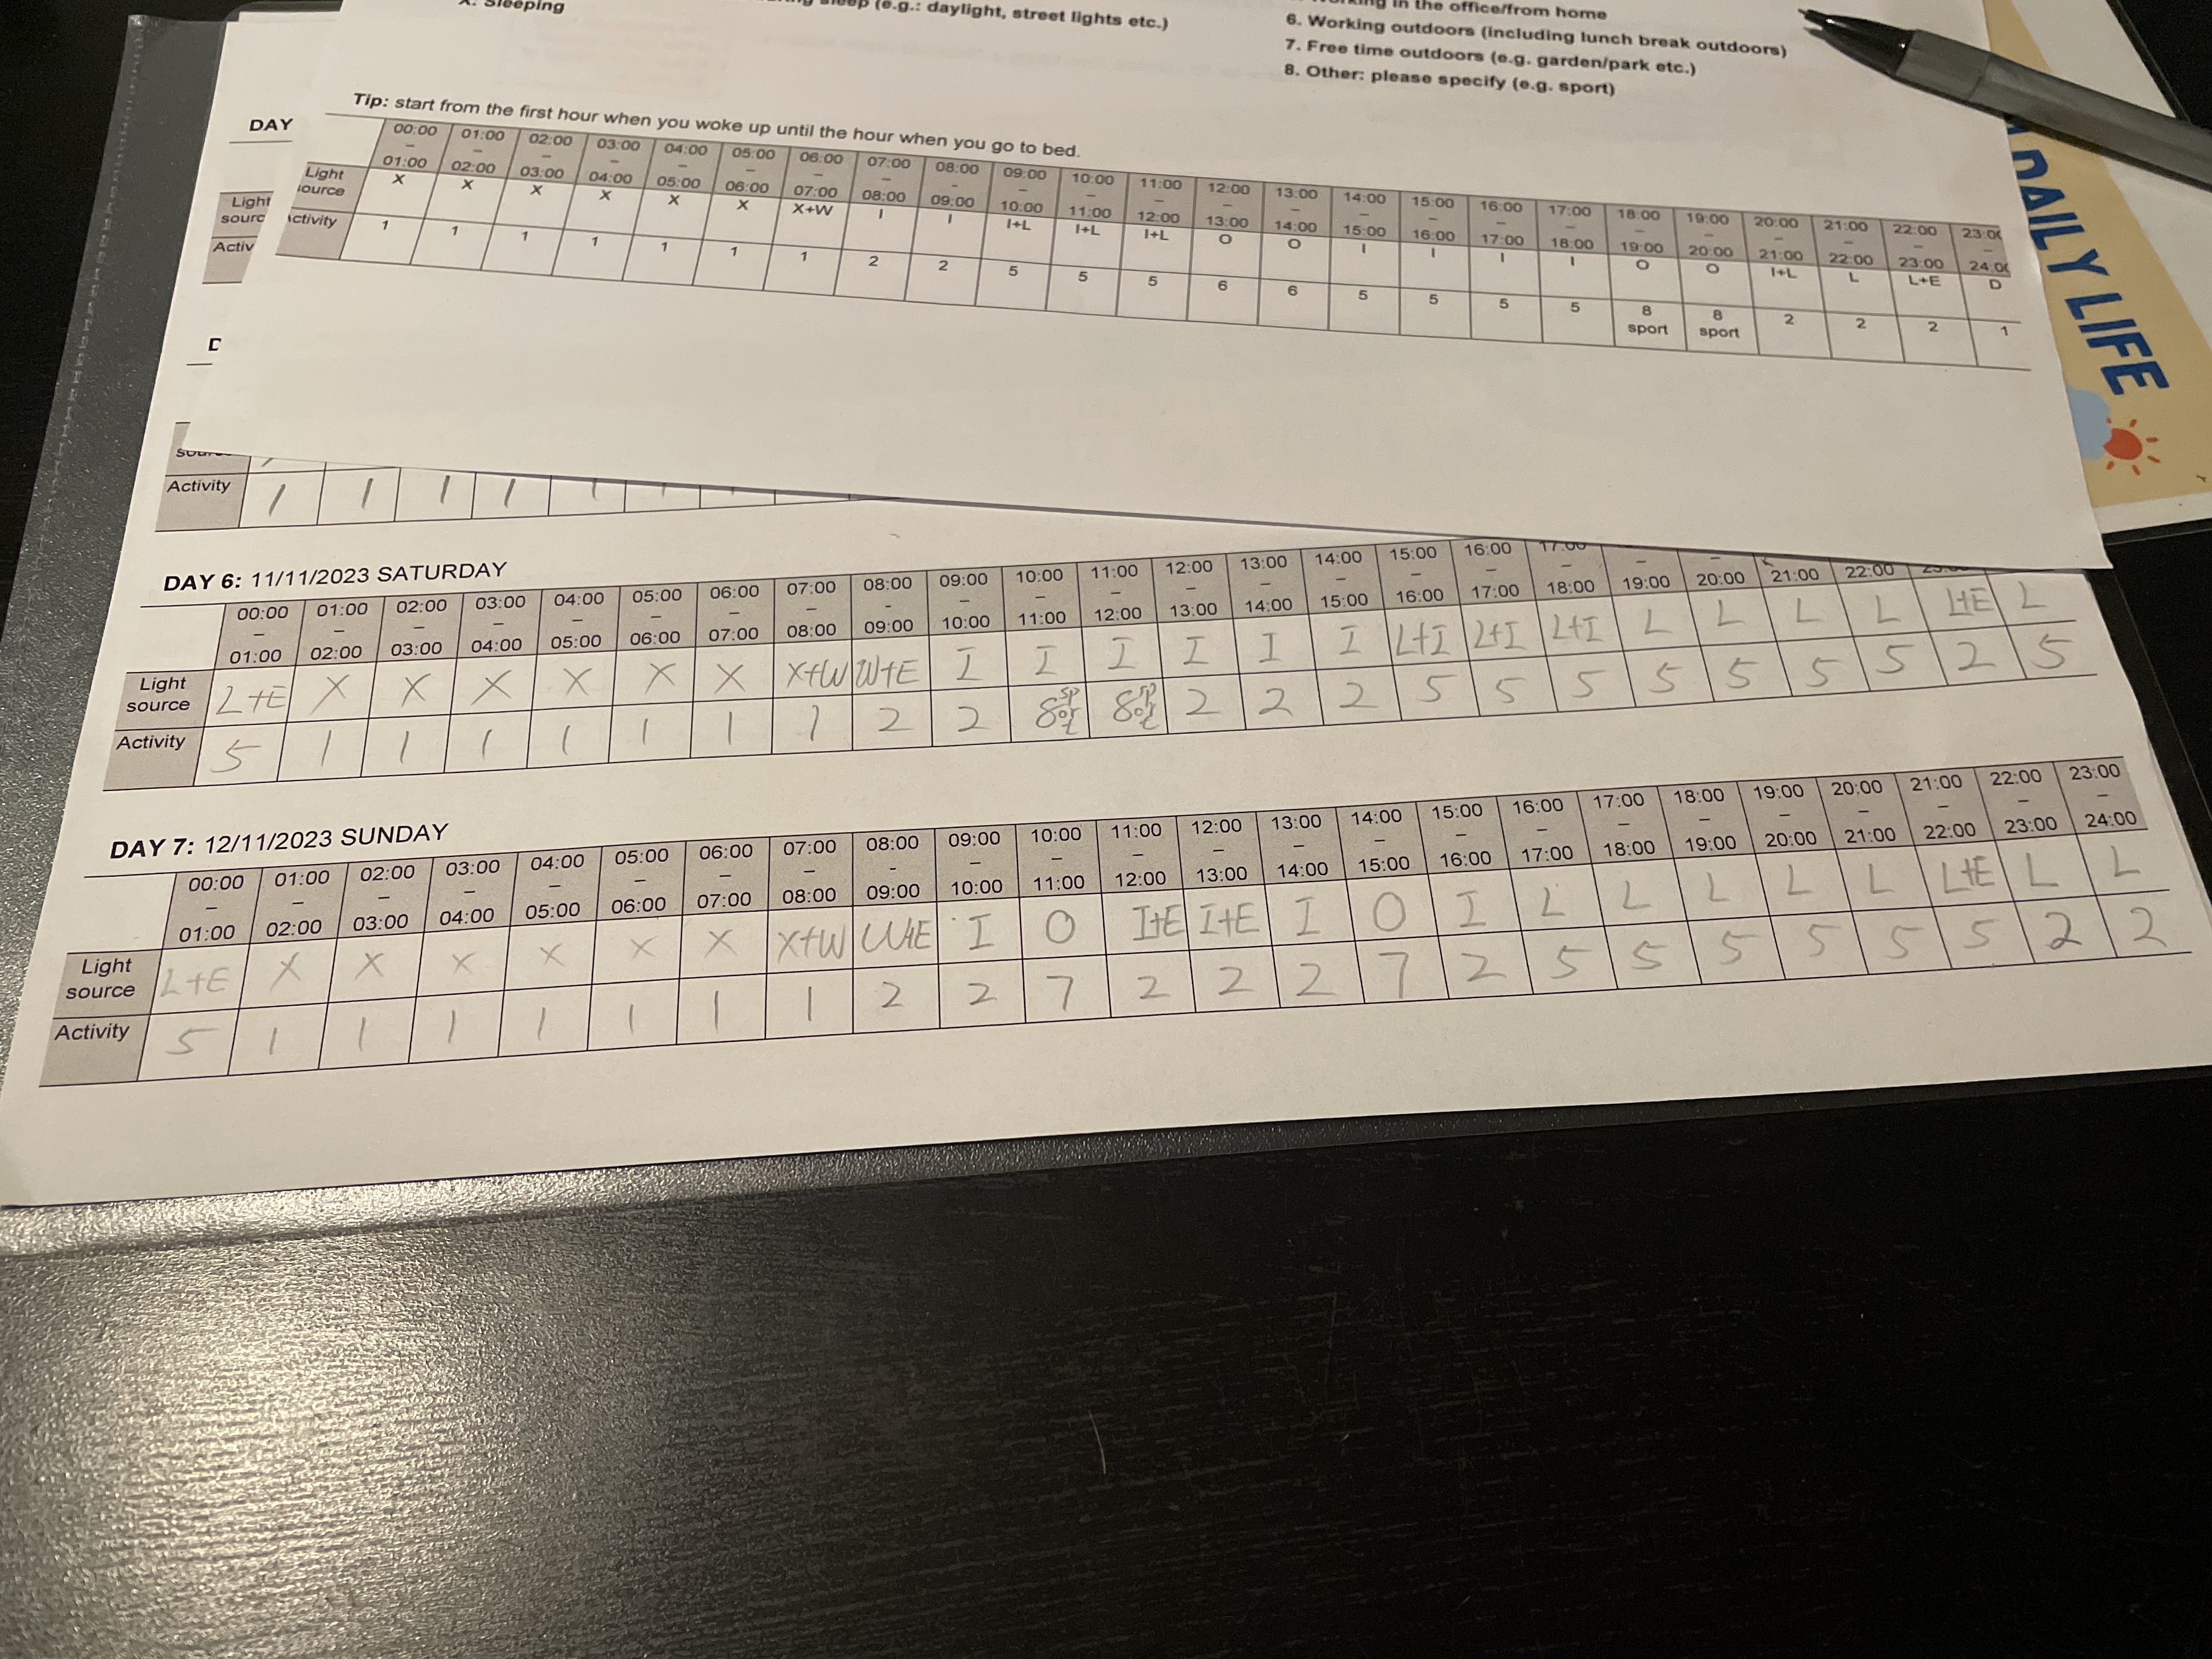 X. Sleeping
sleep (e.g.: daylight, street lights etc.)
in the office/from home
6. Working outdoors (including lunch break outdoors)
7. Free time outdoors (e.g. garden/park etc.)
8. Other: please specify (e.g. sport)
Tip: start from the first hour when you woke up until the hour when you go to bed.
00:00 – 01:00 01:00 – 02:00 02:00 – 03:00 03:00 – 04:00 04:00 – 05:00 05:00 – 06:00 06:00 – 07:00 07:00 – 08:00 08:00 – 09:00 09:00 – 10:00 10:00 – 11:00 11:00 – 12:00 12:00 – 13:00 13:00 – 14:00 14:00 – 15:00 15:00 – 16:00 16:00 – 17:00 17:00 – 18:00 18:00 – 19:00 19:00 – 20:00 20:00 – 21:00 21:00 – 22:00 22:00 – 23:00
Light X X X X X X X+W I I I+L I+L I+L O O I I I I O O I+L L L+E D
1 1 1 1 1 1 1 2 2 5 5 5 6 6 5 5 5 5 8 sport 8 sport 2 2 2 1
DAY
Light
Activity 1 1 1 1 1
DAY 6: 11/11/2023 SATURDAY
00:00 – 01:00 01:00 – 02:00 02:00 – 03:00 03:00 – 04:00 04:00 – 05:00 05:00 – 06:00 06:00 – 07:00 07:00 – 08:00 08:00 - 09:00 09:00 – 10:00 10:00 – 11:00 11:00 – 12:00 12:00 – 13:00 13:00 – 14:00 14:00 – 15:00 15:00 – 16:00 16:00 – 17:00 17:00 – 18:00 – 19:00 – 20:00 21:00 22:00
Light source L+E X X X X X X X+W W+E I I I I I I L+I L+I L+I L L L L L+E L
Activity 5 1 1 1 1 1 1 1 2 2 8 8 2 2 2 5 5 5 5 5 5 5 2 5
DAY 7: 12/11/2023 SUNDAY
00:00 – 01:00 01:00 – 02:00 02:00 – 03:00 03:00 – 04:00 04:00 – 05:00 05:00 – 06:00 06:00 – 07:00 07:00 – 08:00 08:00 - 09:00 09:00 – 10:00 10:00 – 11:00 11:00 – 12:00 12:00 – 13:00 13:00 – 14:00 14:00 – 15:00 15:00 – 16:00 16:00 – 17:00 17:00 – 18:00 18:00 – 19:00 19:00 – 20:00 20:00 – 21:00 21:00 – 22:00 22:00 – 23:00 23:00 – 24:00
Light source L+E X X X X X X X+W W+E I O I+E I+E I O I L L L L L L+E L L
Activity 5 1 1 1 1 1 1 1 2 2 7 2 2 2 7 2 5 5 5 5 5 5 2 2
DAILY LIFE